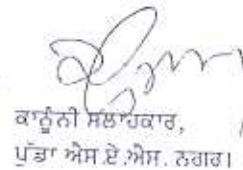 ਕਾਨੂੰਨੀ ਸਲਾਹਕਾਰ,
ਪੁੱਡਾ ਐਸ.ਏ.ਐਸ. ਨਗਰ।